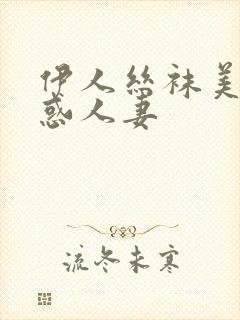 伊人丝袜美
惑人妻
流冬未寒